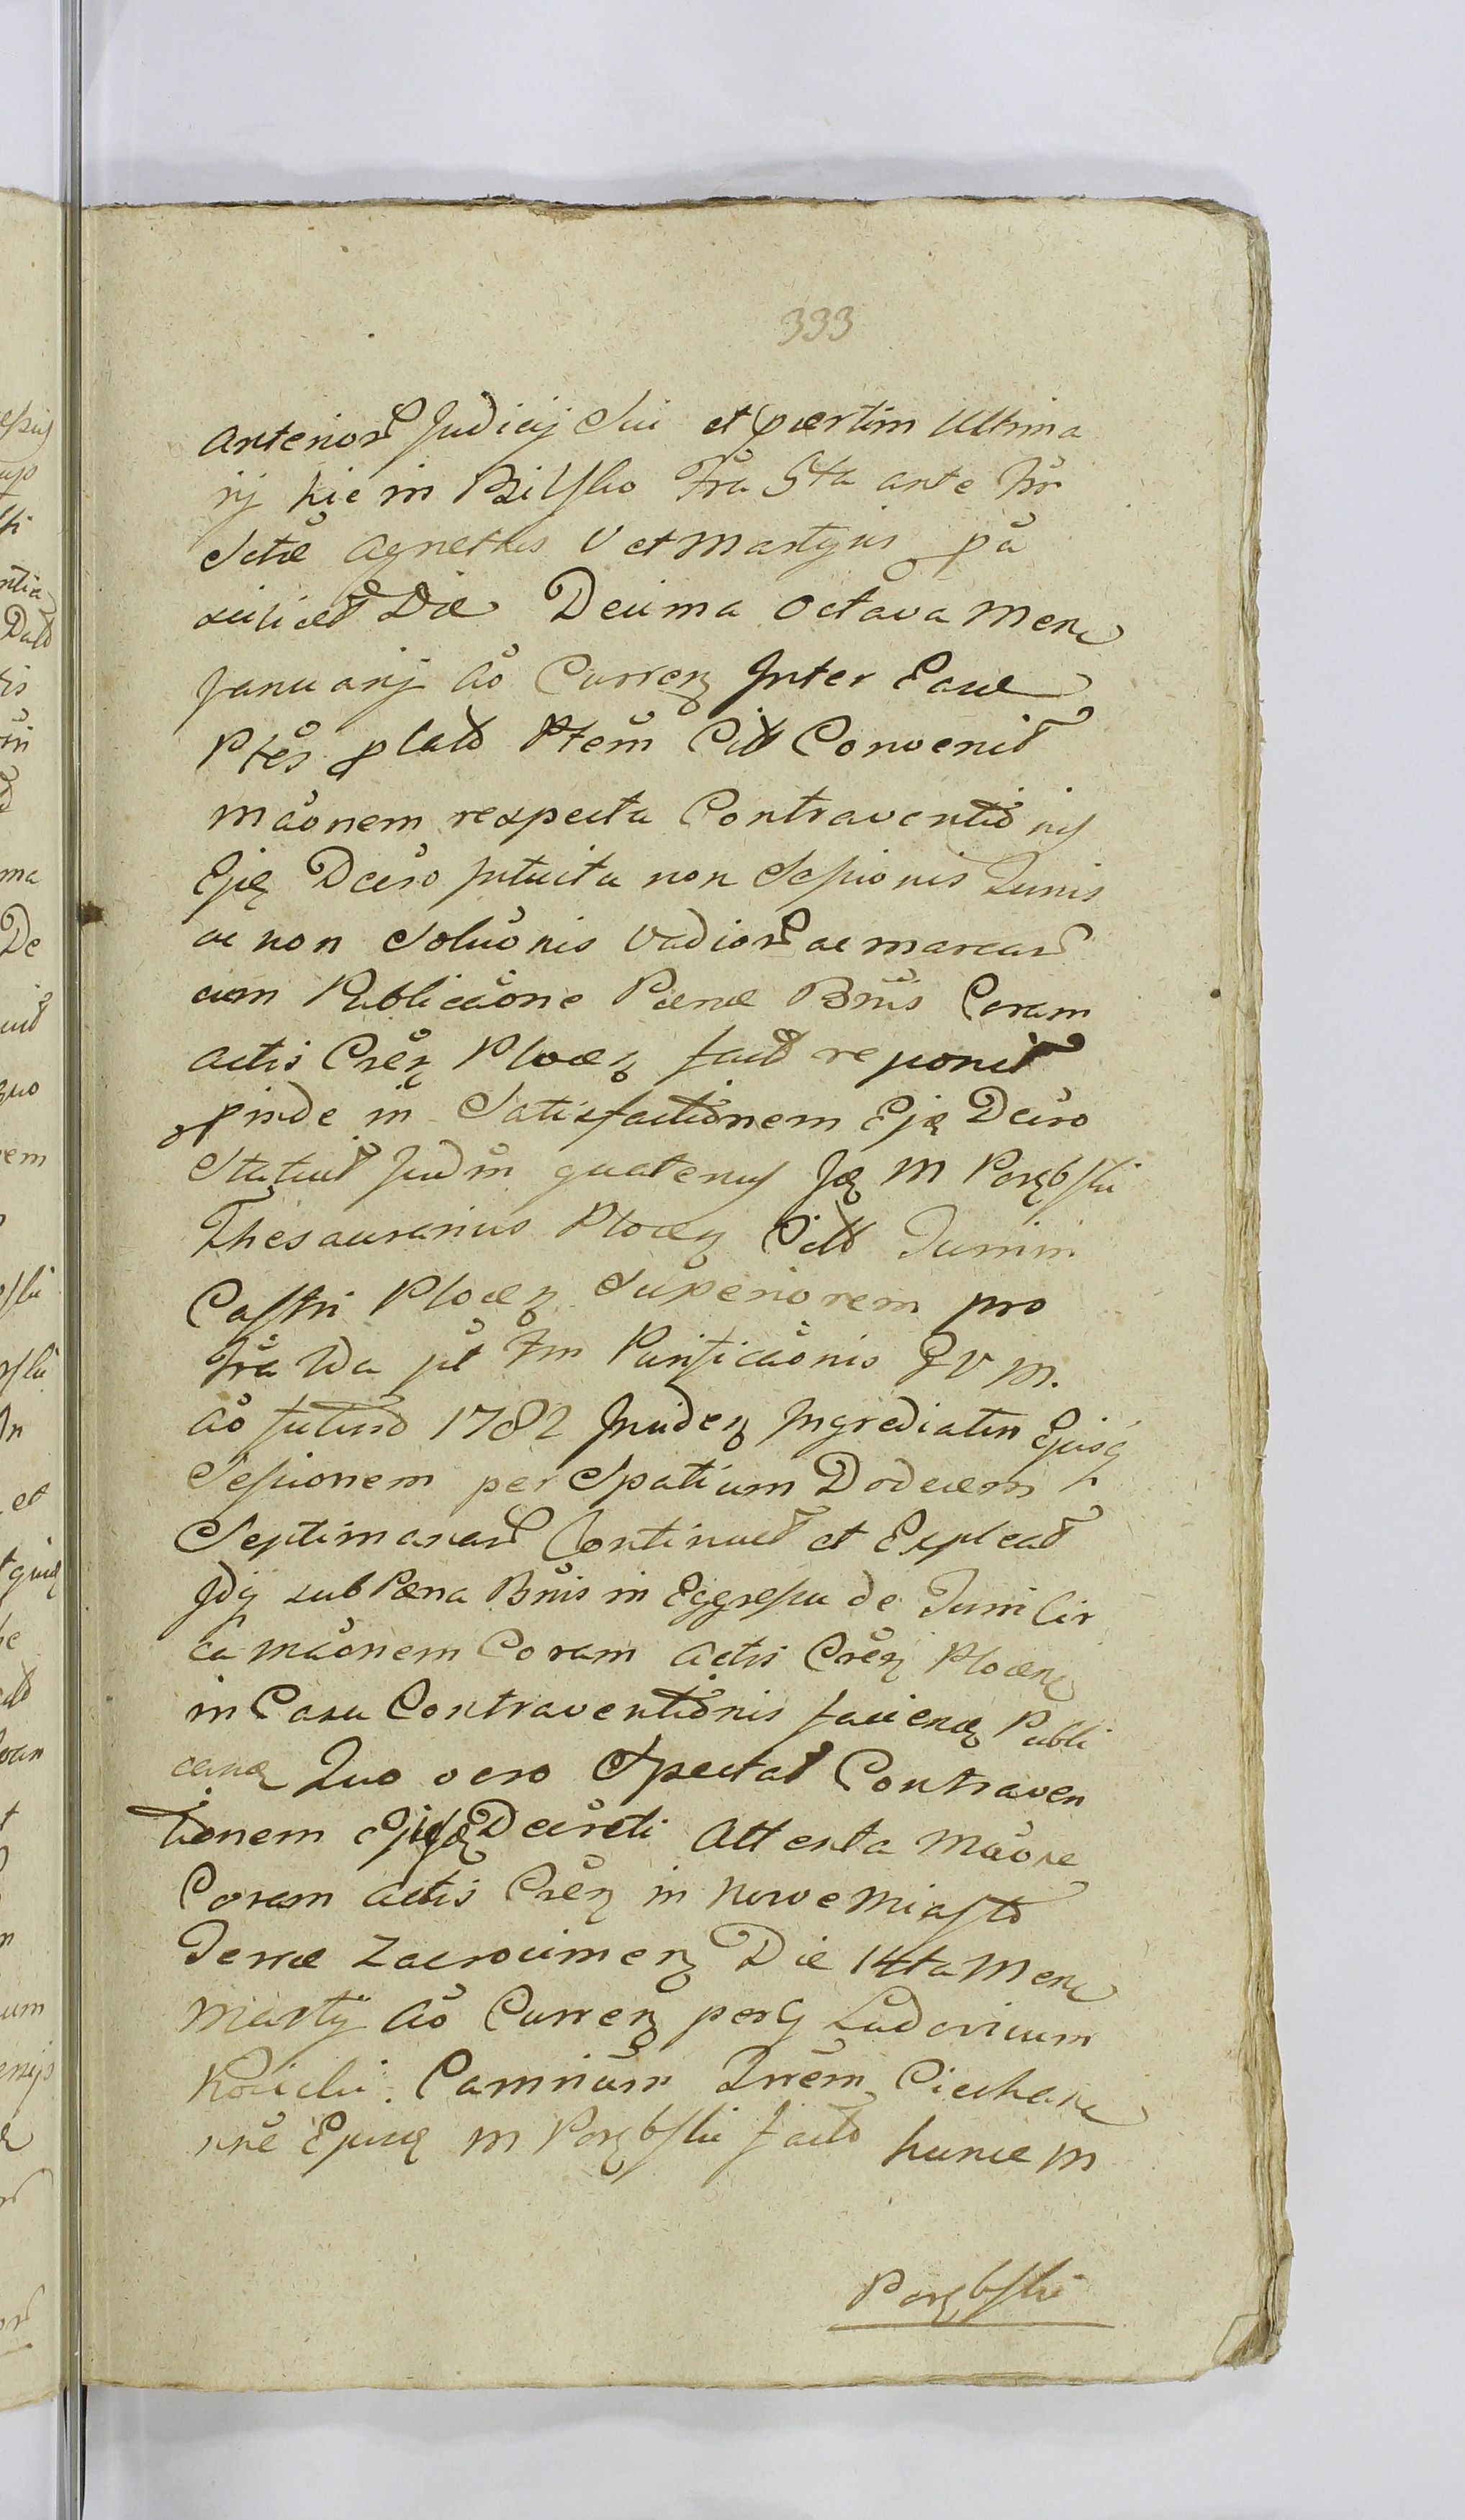 333
anterior Judicij Sui et pertim Ultima
rij hic in Bilsko Fra 5ta ante Fr
Sctae Agnethis V et Martyris pa
scilicet Die Decima Octava Mens
Januarij Ao Curren Inter Easde
Ptes plato Ptem Citt Convenit
maonem respectu Contraventionis
Ejq Dcero intuitu non Sessionis Turris
ac non Soluonis Vadior ac marcar
cum Publicaone Paenae Bnis Coram
actis Cren Plocen fact reponit
pinde in Satisfactionem Ejq Decro
Statuit Judm quatenus Jq M Porębski
Thesaurarius Plocen Citt Turrim
Castri Plocen Superiorem pro
Fra 2da pt Fm Purificaonis B V M.
Ao futuro 1782 Inciden Ingrediatur Ejusq
Sessionem per Spatium Dodecem
Septimanar Continuet et Expleat
Idq sub Paena Bnis in Eggressu de Turri Cir
ca maonem Coram Actis Cren Plocen
in Casu Contraventionis faciend Publi
cand Quo vero Spectat Contraven
tionem Decreti Attenta Maone
Coram Actis Cren in Nowe Miasto
Terrae Zacrocimen Die 14ta Mens
Martij Ao Curren per G Ludovicum
Kocicki Camrium Trrem Ciechan
M Porębski facto hunc M
Porębski